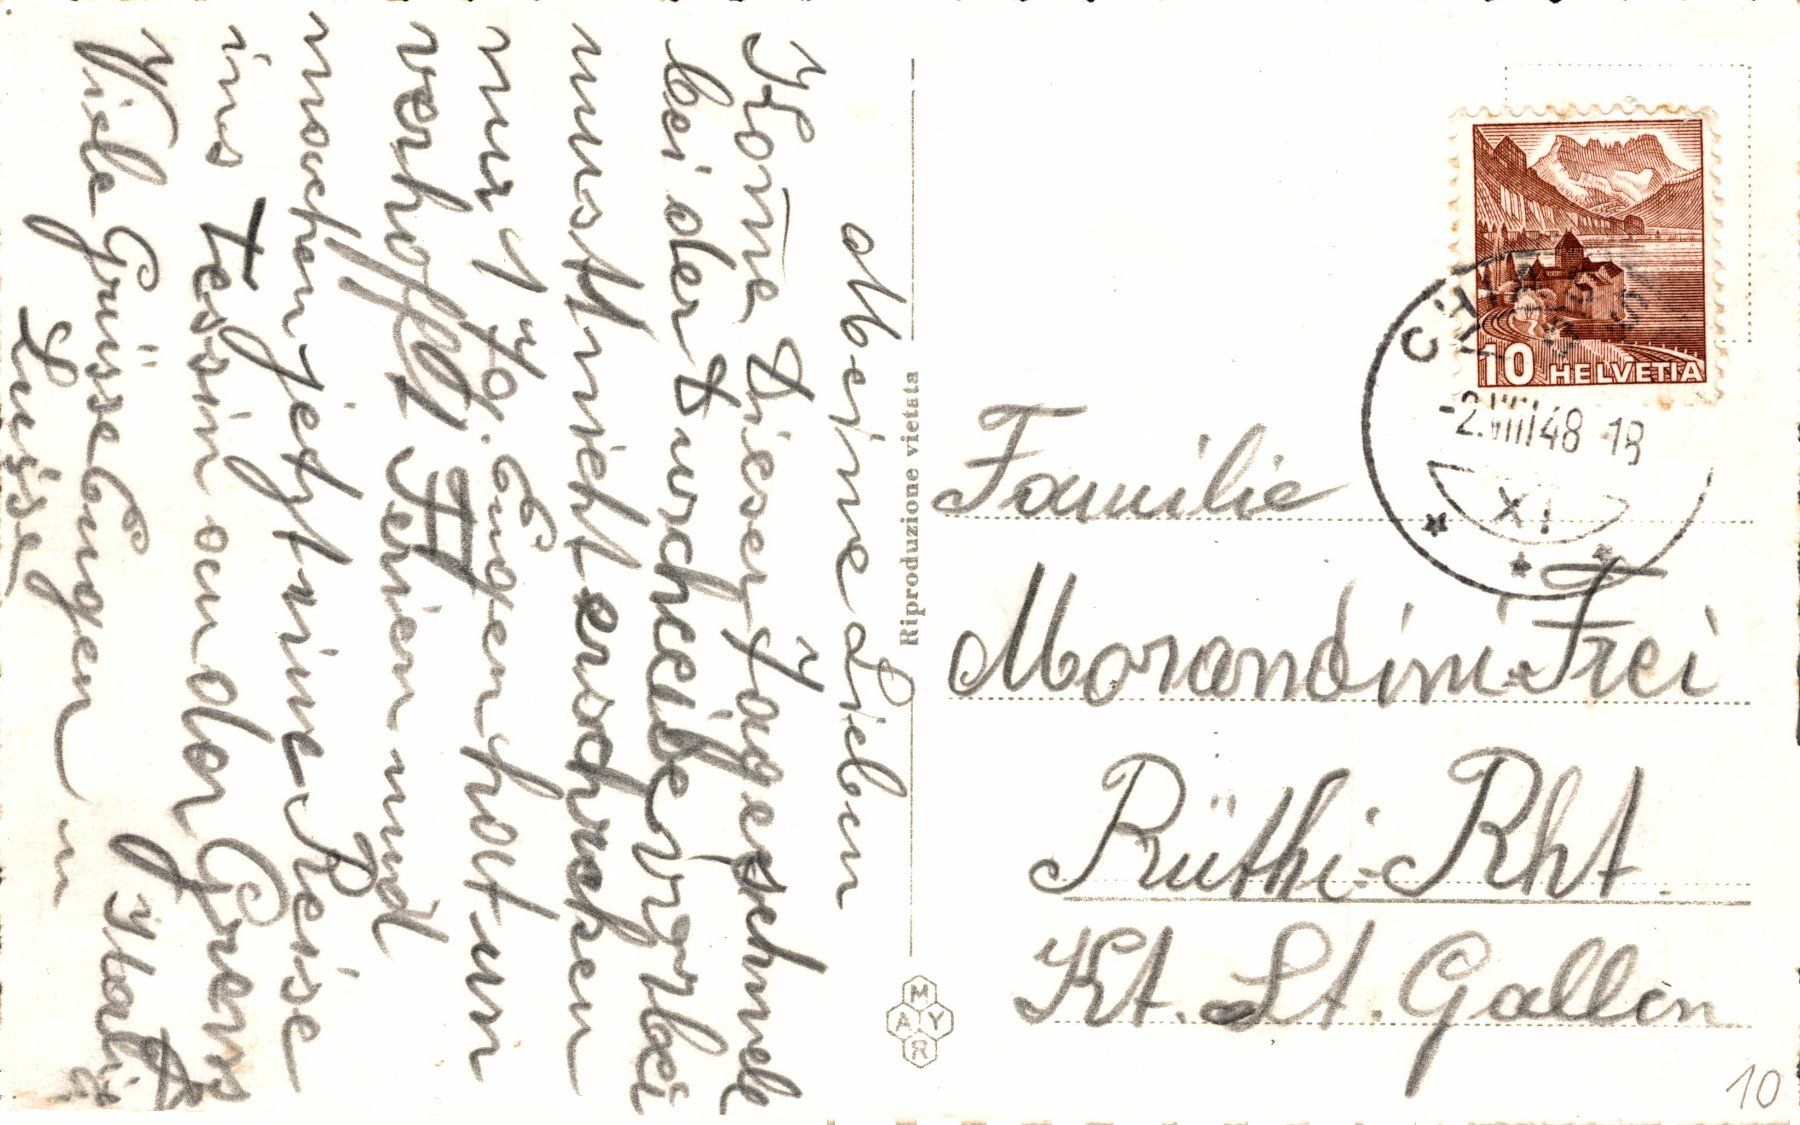 Meine Lieben
Kome dieser Tage schnell
bei der Durchreise vorbei
nur 1 Tg. Eugen hat un
verhofft Ferien und
machen jetzt eine Reise
ins Tessin an der Grenz
Italie
Viele Grüsse Eugen u
Luise
Riproduzione vietata
MAYR
HELVETIA
10
CHIASSO
-2.VIII48-18
XI
Familie
Morandini-Frei
Rüthi-Rht.
Kt. St. Gallen
10